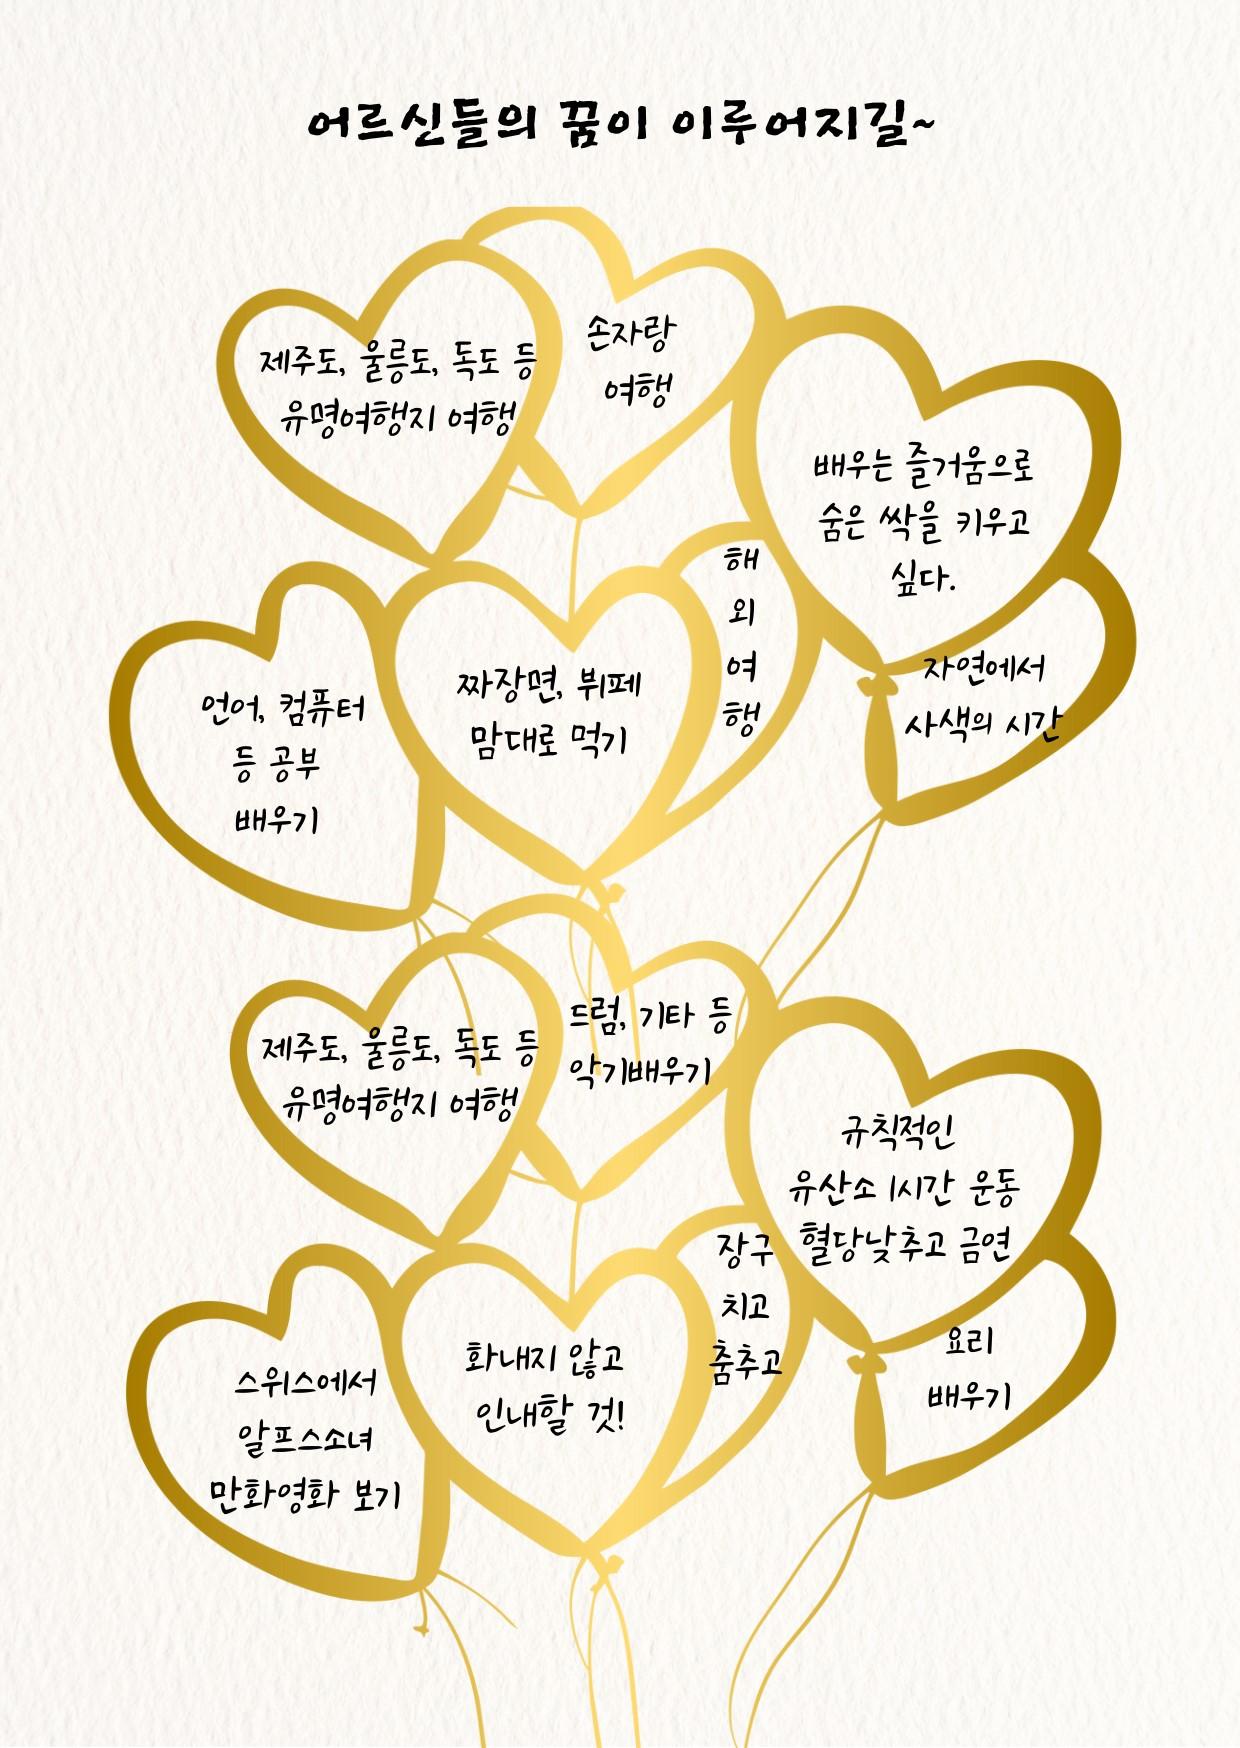 어르신들의 꿈이 이루어지길~
제주도, 울릉도, 독도 등
유명여행지 여행
손자랑
여행
배우는 즐거움으로
숨은 싹을 키우고
싶다.
언어, 컴퓨터
등 공부
배우기
짜장면, 뷔페
맘대로 먹기
해
외
여
행
자연에서
사색의 시간
제주도, 울릉도, 독도 등
유명여행지 여행
드럼, 기타 등
악기배우기
규칙적인
유산소 1시간 운동
혈당낮추고 금연
스위스에서
알프스소녀
만화영화 보기
화내지 않고
인내할 것!
장구
치고
춤추고
요리
배우기